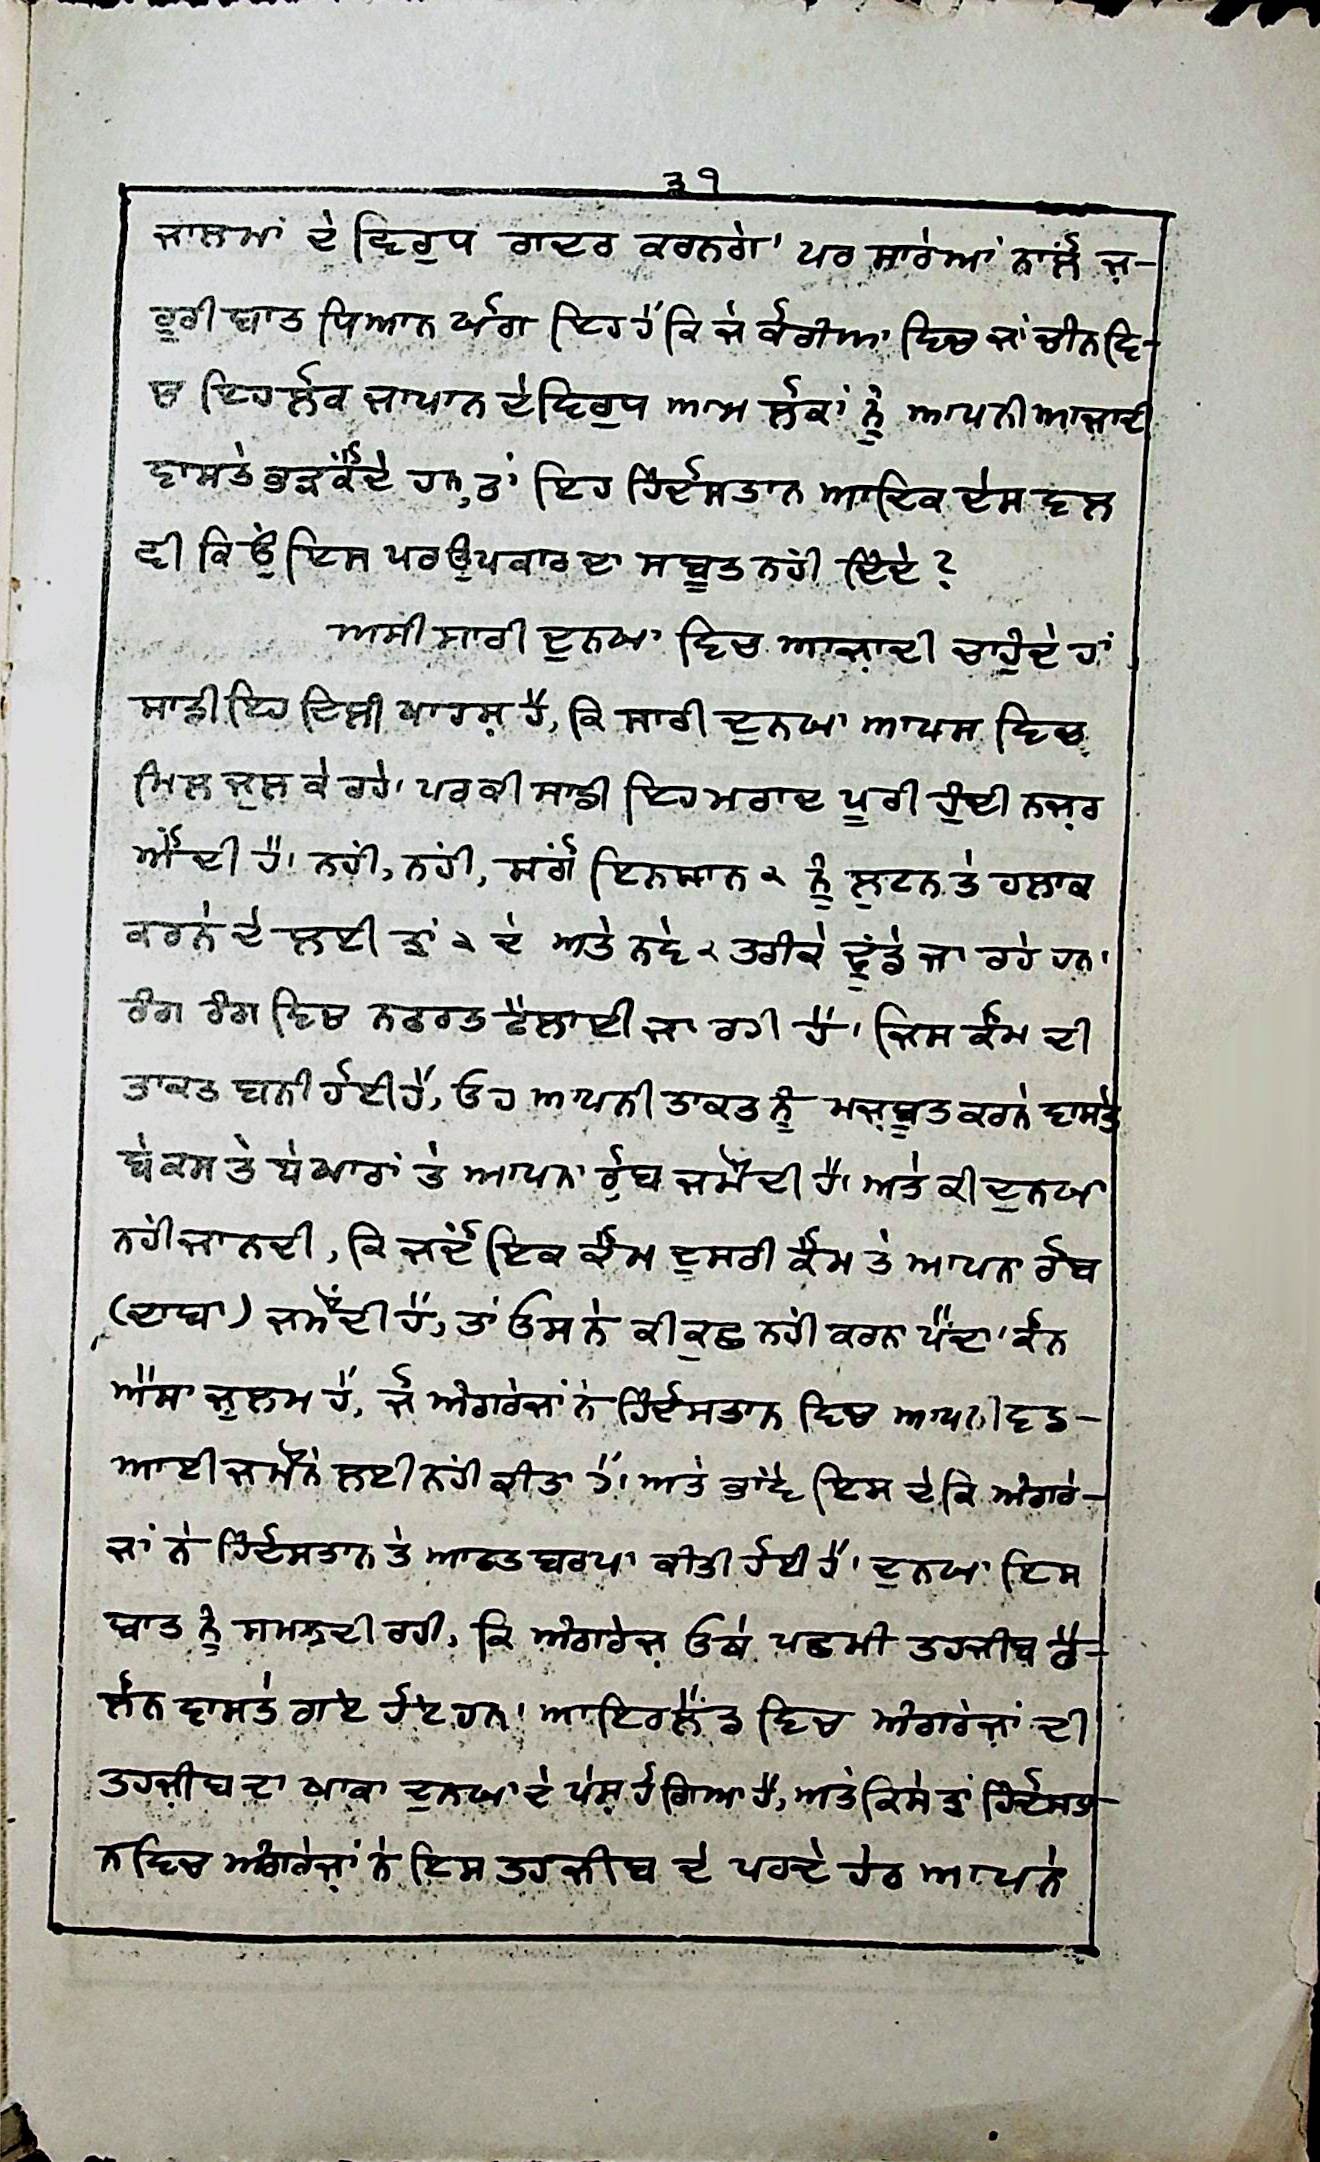 ੩੧
ਜ਼ਾਲਮਾਂ ਦੇ ਵਿਰੁਧ ਗਦਰ ਕਰਨਗੇ' ਪਰ ਸਾਰੇਆਂ ਨਾਲੋਂ ਜ਼-
ਰੂਰੀ ਬਾਤ ਧਿਆਨ ਯੋਗ ਇਹ ਹੈ ਕਿ ਜੇ ਕੋਰੀਆ ਵਿਚ ਜਾਂ ਚੀਨ ਵਿ-
ਚ ਇਹ ਲੋਕ ਜਾਪਾਨ ਦੇ ਵਿਰੁਧ ਆਮ ਲੋਕਾਂ ਨੂੰ ਆਪਨੀ ਆਜ਼ਾਦੀ
ਵਾਸਤੇ ਭੜਕੌਂਦੇ ਹਨ, ਤਾਂ ਇਹ ਹਿੰਦੋਸਤਾਨ ਆਦਿਕ ਦੇਸ ਵਲ
ਵੀ ਕਿਓਂ ਇਸ ਪਰਉਪਕਾਰ ਦਾ ਸਬੂਤ ਨਹੀਂ ਦਿੰਦੇ?
ਅਸੀ ਸਾਰੀ ਦੁਨਯਾ ਵਿਚ ਆਜ਼ਾਦੀ ਚਾਹੁੰਦੇ ਹਾਂ
ਸਾਡੀ ਇਹ ਦਿਲੀ ਖਾਹਸ਼ ਹੈ, ਕਿ ਸਾਰੀ ਦੁਨਯਾ ਆਪਸ ਵਿਚ
ਮਿਲ ਜੁਲ ਕੇ ਰਹੇ' ਪਰ ਕੀ ਸਾਡੀ ਇਹ ਮੁਰਾਦ ਪੂਰੀ ਹੁੰਦੀ ਨਜ਼ਰ
ਔਂਦੀ ਹੈ' ਨਹੀਂ, ਨਹੀਂ, ਸਗੋਂ ਇਨਸਾਨ ੨ ਨੂੰ ਲੁਟਨ ਤੇ ਹਲਾਕ
ਕਰਨੇ ਦੇ ਲਈ ਭਾਂ ੨ ਦੇ ਅਤੇ ਨਵੇਂ ੨ ਤਰੀਕੇ ਢੂੰਡੇ ਜਾ ਰਹੇ ਹਨ'
ਰੰਗ ਰੰਗ ਵਿਚ ਨਫਰਤ ਫੈਲਾਈ ਜਾ ਰਹੀ ਹੈ' ਜਿਸ ਕੌਮ ਦੀ
ਤਾਕਤ ਬਨੀ ਹੋਈ ਹੈ, ਓਹ ਆਪਨੀ ਤਾਕਤ ਨੂੰ ਮਜ਼ਬੂਤ ਕਰਨੇ ਵਾਸਤੇ
ਬੇਕਸ ਤੇ ਬੇਘਾਰਾਂ ਤੇ ਆਪਨਾ ਰੋਬ ਜਮੌਂਦੀ ਹੈ' ਅਤੇ ਕੀ ਦੁਨਯਾ
ਨਹੀਂ ਜਾਨਦੀ, ਕਿ ਜਦੋਂ ਇਕ ਕੌਮ ਦੂਸਰੀ ਕੌਮ ਤੇ ਆਪਨਾ ਰੋਬ
(ਦਾਬਾ) ਜਮੌਂਦੀ ਹੈ, ਤਾਂ ਓਸਨੇ ਕੀ ਕੁਛ ਨਹੀਂ ਕਰਨਾ ਪੈਂਦਾ' ਕੌਨ
ਐਸਾ ਜ਼ੁਲਮ ਹੈ, ਜੋ ਅੰਗਰੇਜ਼ਾਂ ਨੇ ਹਿੰਦੋਸਤਾਨ ਵਿਚ ਆਪਨੀ ਵਡ-
ਆਈ ਜਮੌਨੇ ਲਈ ਨਹੀਂ ਕੀਤਾ ਹੈ' ਅਤੇ ਭਾਂਵੇਂ ਇਸ ਦੇ ਕਿ ਅੰਗਰੇ-
ਜਾਂ ਨੇ ਹਿੰਦੋਸਤਾਨ ਤੇ ਆਫਤ ਬਰਪਾ ਕੀਤੀ ਹੋਈ ਹੈ' ਦੁਨਯਾ ਇਸ
ਬਾਤ ਨੂੰ ਸਮਝਦੀ ਰਹੀ, ਕਿ ਅੰਗਰੇਜ਼ ਓਥੇ ਪਛਮੀ ਤਹਜ਼ੀਬ ਫੈ-
ਲੌਨ ਵਾਸਤੇ ਗਏ ਹੋਏ ਹਨ' ਆਇਰਲੈਂਡ ਵਿਚ ਅੰਗਰੇਜ਼ਾਂ ਦੀ
ਤਹਜ਼ੀਬ ਦਾ ਖਾਕਾ ਦੁਨਯਾ ਦੇ ਪੇਸ਼ ਹੋ ਗਿਆ ਹੈ, ਅਤੇ ਕਿਸੇ ਭਾਂ ਹਿੰਦੋਸਤਾ-
ਨ ਵਿਚ ਅੰਗਰੇਜ਼ਾਂ ਨੇ ਇਸ ਤਹਜ਼ੀਬ ਦੇ ਪਰਦੇ ਹੇਠ ਆਪਨੇ